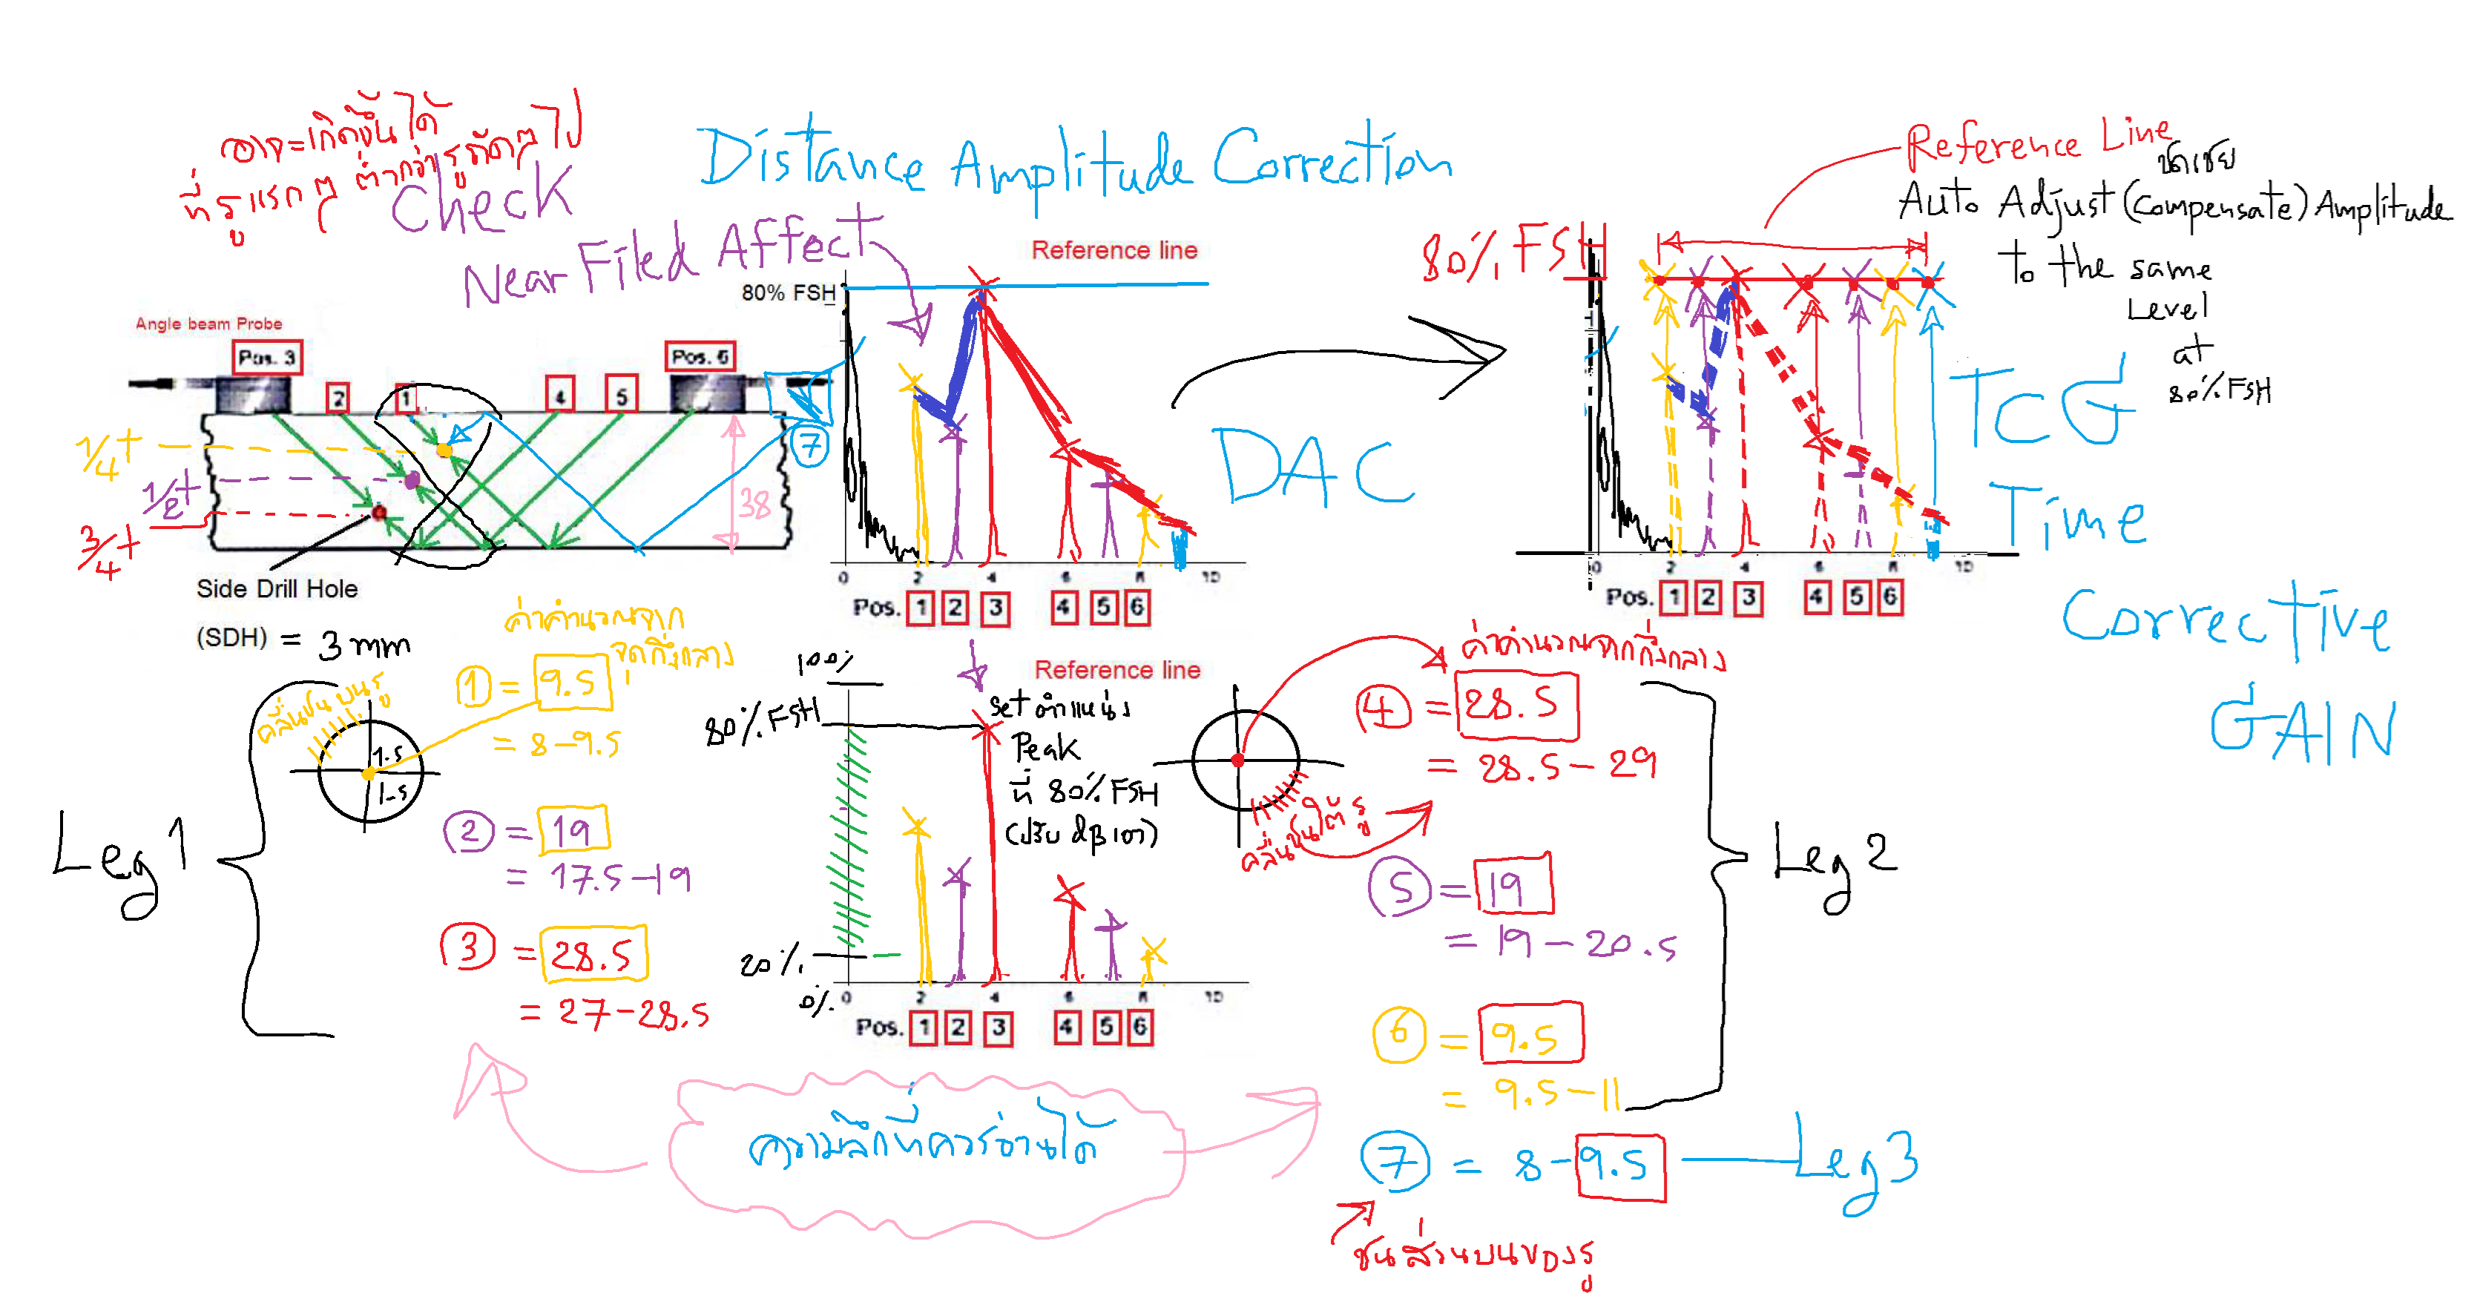 อาจจะเกิดขึ้นได้
ที่รูแรกๆ ต่ำกว่ารูถัดๆไป
Check
Near Filed Affect
Distance Amplitude Correction
Reference line
80% FSH
Angle beam Probe
Pos. 3
2
1
4
5
Pos. 6
7
1/4 t
1/2 t
3/4 t
38
Side Drill Hole
(SDH) = 3 mm
0 2 4 6 8 10
Pos. 1 2 3 4 5 6
DAC
80% FSH
Reference Line
ชดเชย
Auto Adjust (compensate) Amplitude
to the same
Level
at
80% FSH
TCG
Time
Corrective
GAIN
0 2 4 6 8 10
Pos. 1 2 3 4 5 6
Leg 1
คลื่นชนบนรู
1.5
1.5
ค่าคำนวณจาก
จุดกึ่งกลาง
1 = 9.5
= 8-9.5
2 = 19
= 17.5-19
3 = 28.5
= 27-28.5
Reference line
100%
80% FSH
20%
0%
set ตำแหน่ง
Peak
ที่ 80% FSH
(ปรับ dB เอา)
0 2 4 6 8 10
Pos. 1 2 3 4 5 6
ค่าคำนวณจากกึ่งกลาง
คลื่นชนใต้รู
4 = 28.5
= 28.5-29
5 = 19
= 19-20.5
6 = 9.5
= 9.5-11
Leg 2
7 = 8-9.5
Leg 3
ชนส่วนบนของรู
ความลึกที่ควรอ่านได้